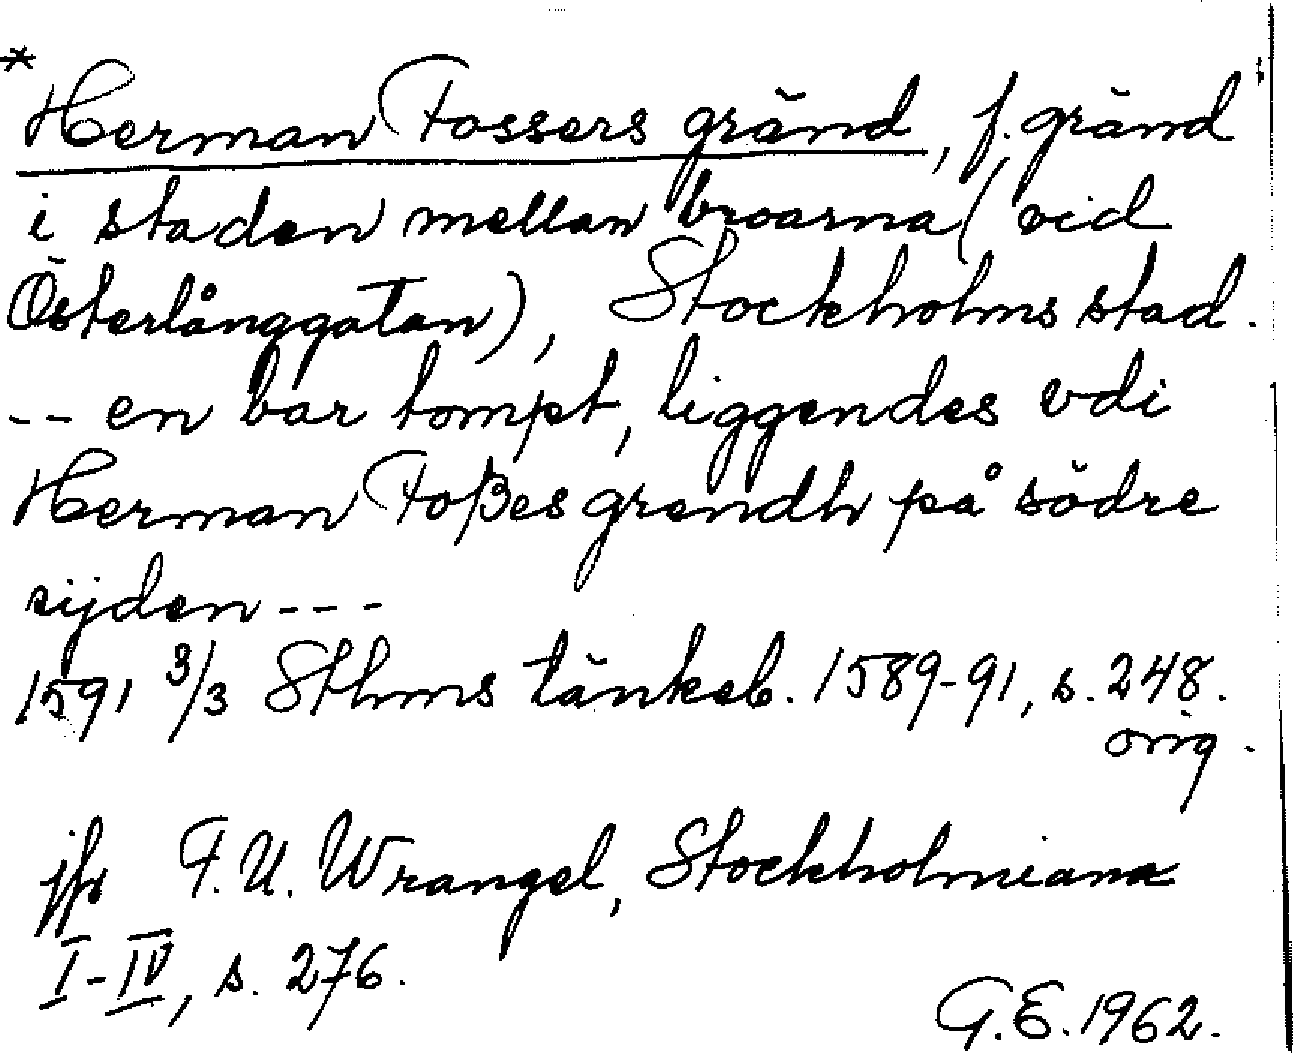 * Herman Fossers gränd, f. gränd
i staden mellan broarna (vid
Österlånggatan), Stockholms stad.
-- en bar tompt, liggendes vdi
Herman Foßes grendh på södre
sijden ---
1591 3/3 Sthms tänkeb. 1589-91, s. 248.
orig.
jfr F. U. Wrangel, Stockholmiana
I-IV, s. 276.
G. E. 1962.